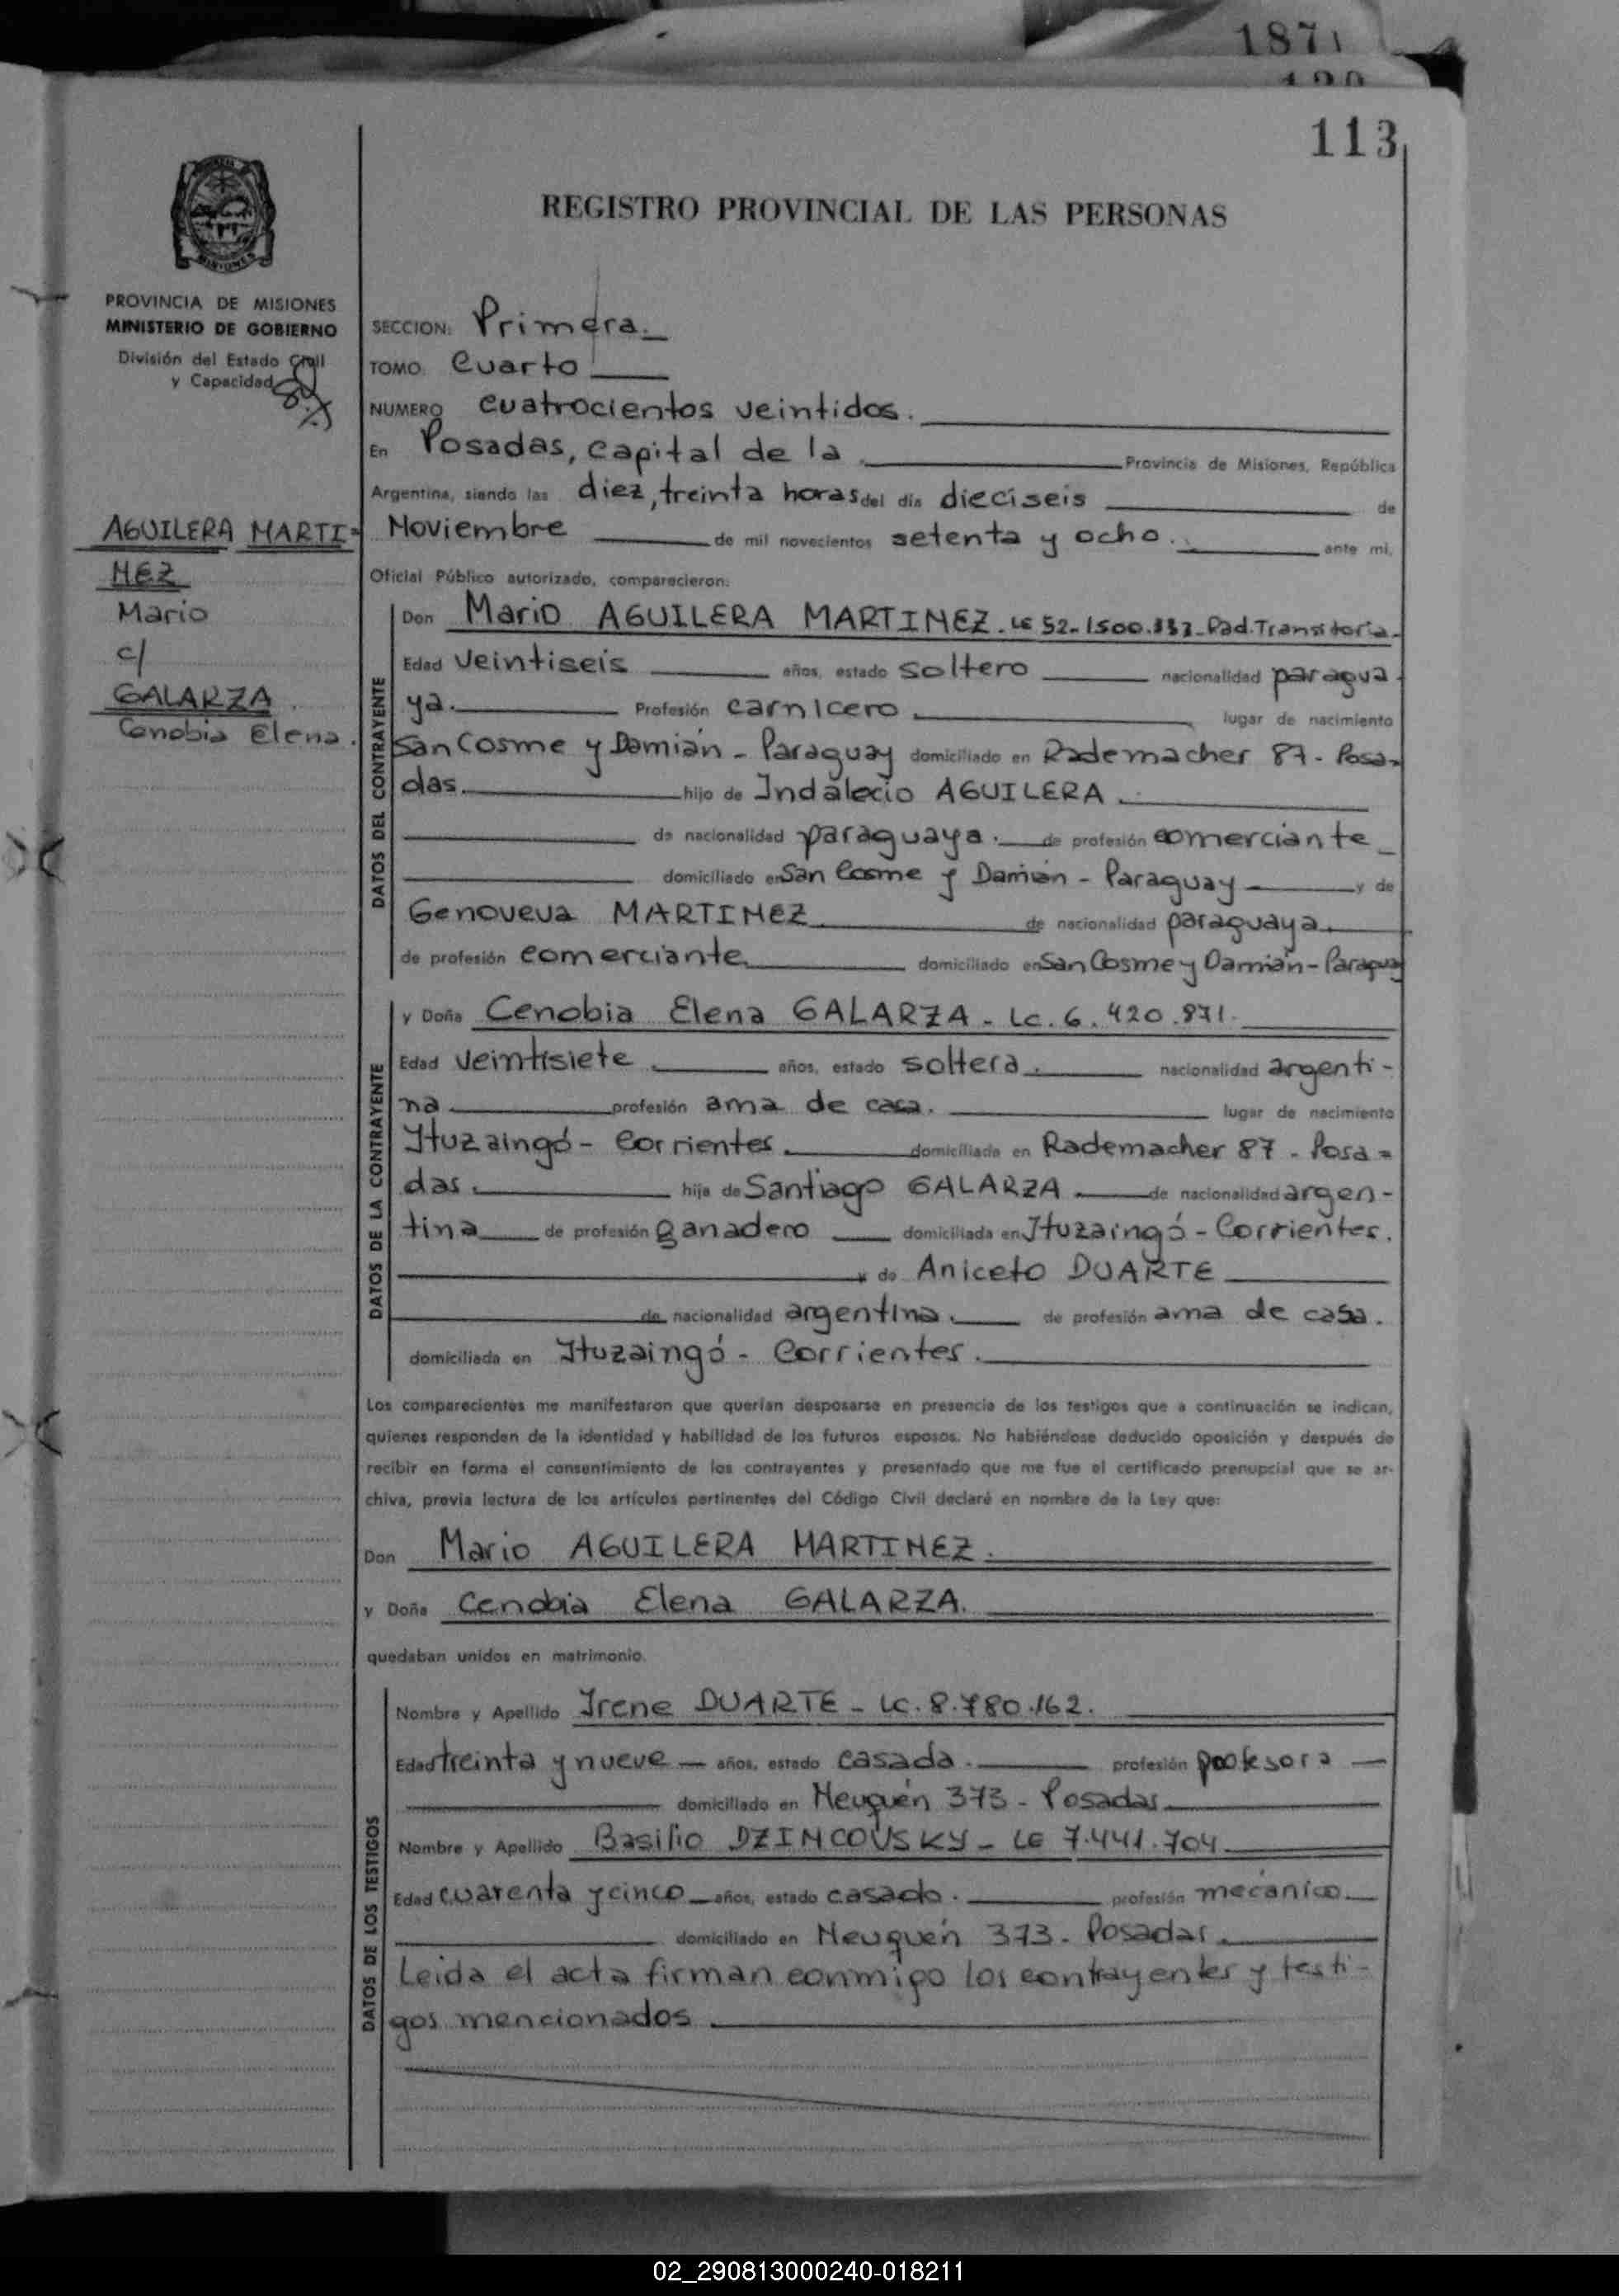 187
113
REGISTRO PROVINCIAL DE LAS PERSONAS
PROVINCIA DE MISIONES
MINISTERIO DE GOBIERNO
División del Estado Civil
y Capacidad
AGUILERA MARTI-
NEZ
Mario
c/
GALARZA
Cenobia Elena.
SECCION: Primera.
TOMO: Cuarto
NUMERO cuatrocientos veintidos.
En Posadas, capital de la Provincia de Misiones, República
Argentina, siendo las diez, treinta horas del día dieciseis de
Noviembre de mil novecientos setenta y ocho. ante mi,
Oficial Público autorizado, comparecieron:
DATOS DEL CONTRAYENTE
Don Mario AGUILERA MARTINEZ. LE 52-1500.337-Rad.Transitoria-
Edad Veintiseis años, estado soltero nacionalidad paragua-
ya. Profesión carnicero lugar de nacimiento
San Cosme y Damián - Paraguay domiciliado en Rademacher 87 - Posa-
das. hijo de Indalecio AGUILERA.
de nacionalidad paraguaya. de profesión comerciante
domiciliado en San Cosme y Damián - Paraguay y de
Genoveva MARTINEZ de nacionalidad paraguaya.
de profesión comerciante domiciliado en San Cosme y Damián - Paraguay
DATOS DE LA CONTRAYENTE
y Doña Cenobia Elena GALARZA - LC. 6.420.871.
Edad veintisiete años, estado soltera. nacionalidad argenti-
na profesión ama de casa. lugar de nacimiento
Ituzaingó - Corrientes. domiciliada en Rademacher 87 - Posa=
das. hija de Santiago GALARZA de nacionalidad argen-
tina de profesión ganadero domiciliada en Ituzaingó - Corrientes.
y de Aniceto DUARTE
de nacionalidad argentina. de profesión ama de casa.
domiciliada en Ituzaingó - Corrientes.
Los comparecientes me manifestaron que querían desposarse en presencia de los testigos que a continuación se indican,
quienes responden de la identidad y habilidad de los futuros esposos. No habiéndose deducido oposición y después de
recibir en forma el consentimiento de los contrayentes y presentado que me fue el certificado prenupcial que se ar-
chiva, previa lectura de los artículos pertinentes del Código Civil declaré en nombre de la Ley que:
Don Mario AGUILERA MARTINEZ.
y Doña Cenobia Elena GALARZA.
quedaban unidos en matrimonio.
DATOS DE LOS TESTIGOS
Nombre y Apellido Irene DUARTE - LC. 8.780.162.
Edad treinta y nueve años, estado casada. profesión profesora
domiciliado en Neuquén 373 - Posadas
Nombre y Apellido Basilio DZINCOVSKY - LE 7.441.704
Edad cuarenta y cinco años, estado casado. profesión mecánico
domiciliado en Neuquén 373 - Posadas.
Leida el acta firman conmigo los contrayentes y testi-
gos mencionados
02_290813000240-018211